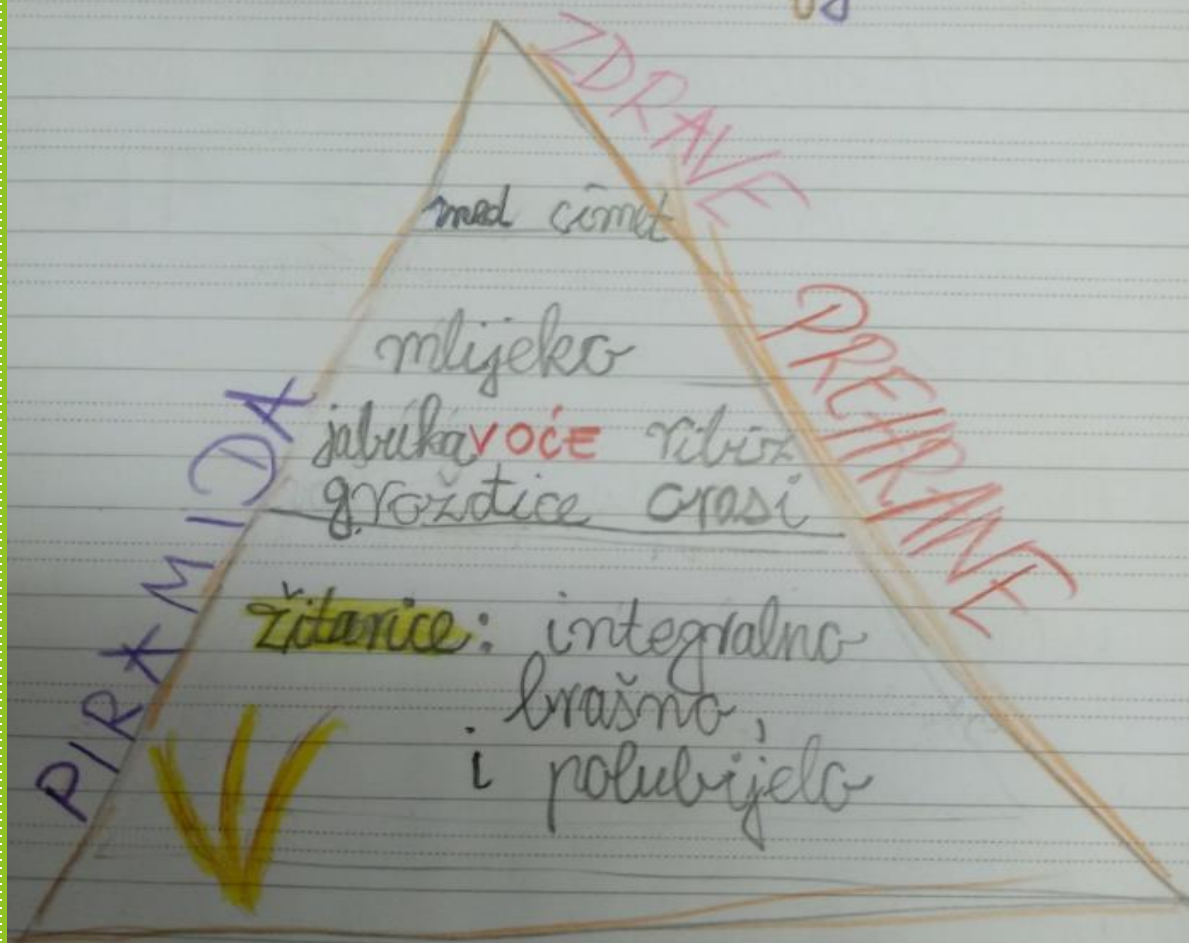 PIRAMIDA
ZDRAVE
PREHRANE
med cimet
mlijeko
jabuka VOĆE ribiz
groždice orasi
žitarice: integralno
brašno,
i polubijelo